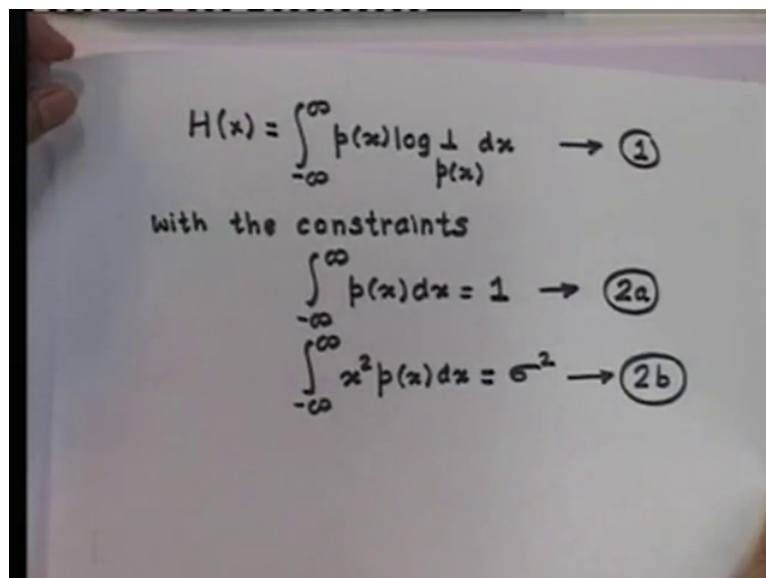 H(x) = ∫_{-∞}^{∞} p(x) log 1/p(x) dx → ①
with the constraints
∫_{-∞}^{∞} p(x) dx = 1 → (2a)
∫_{-∞}^{∞} x² p(x) dx = σ² → (2b)